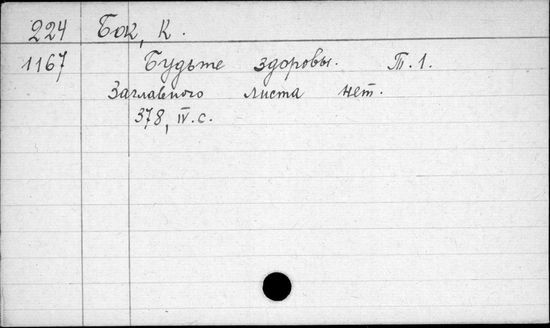 224 Бок, К.
1167 Будьте здоровы. Т.1.
Заглавного листа нет.
378, IV.с.